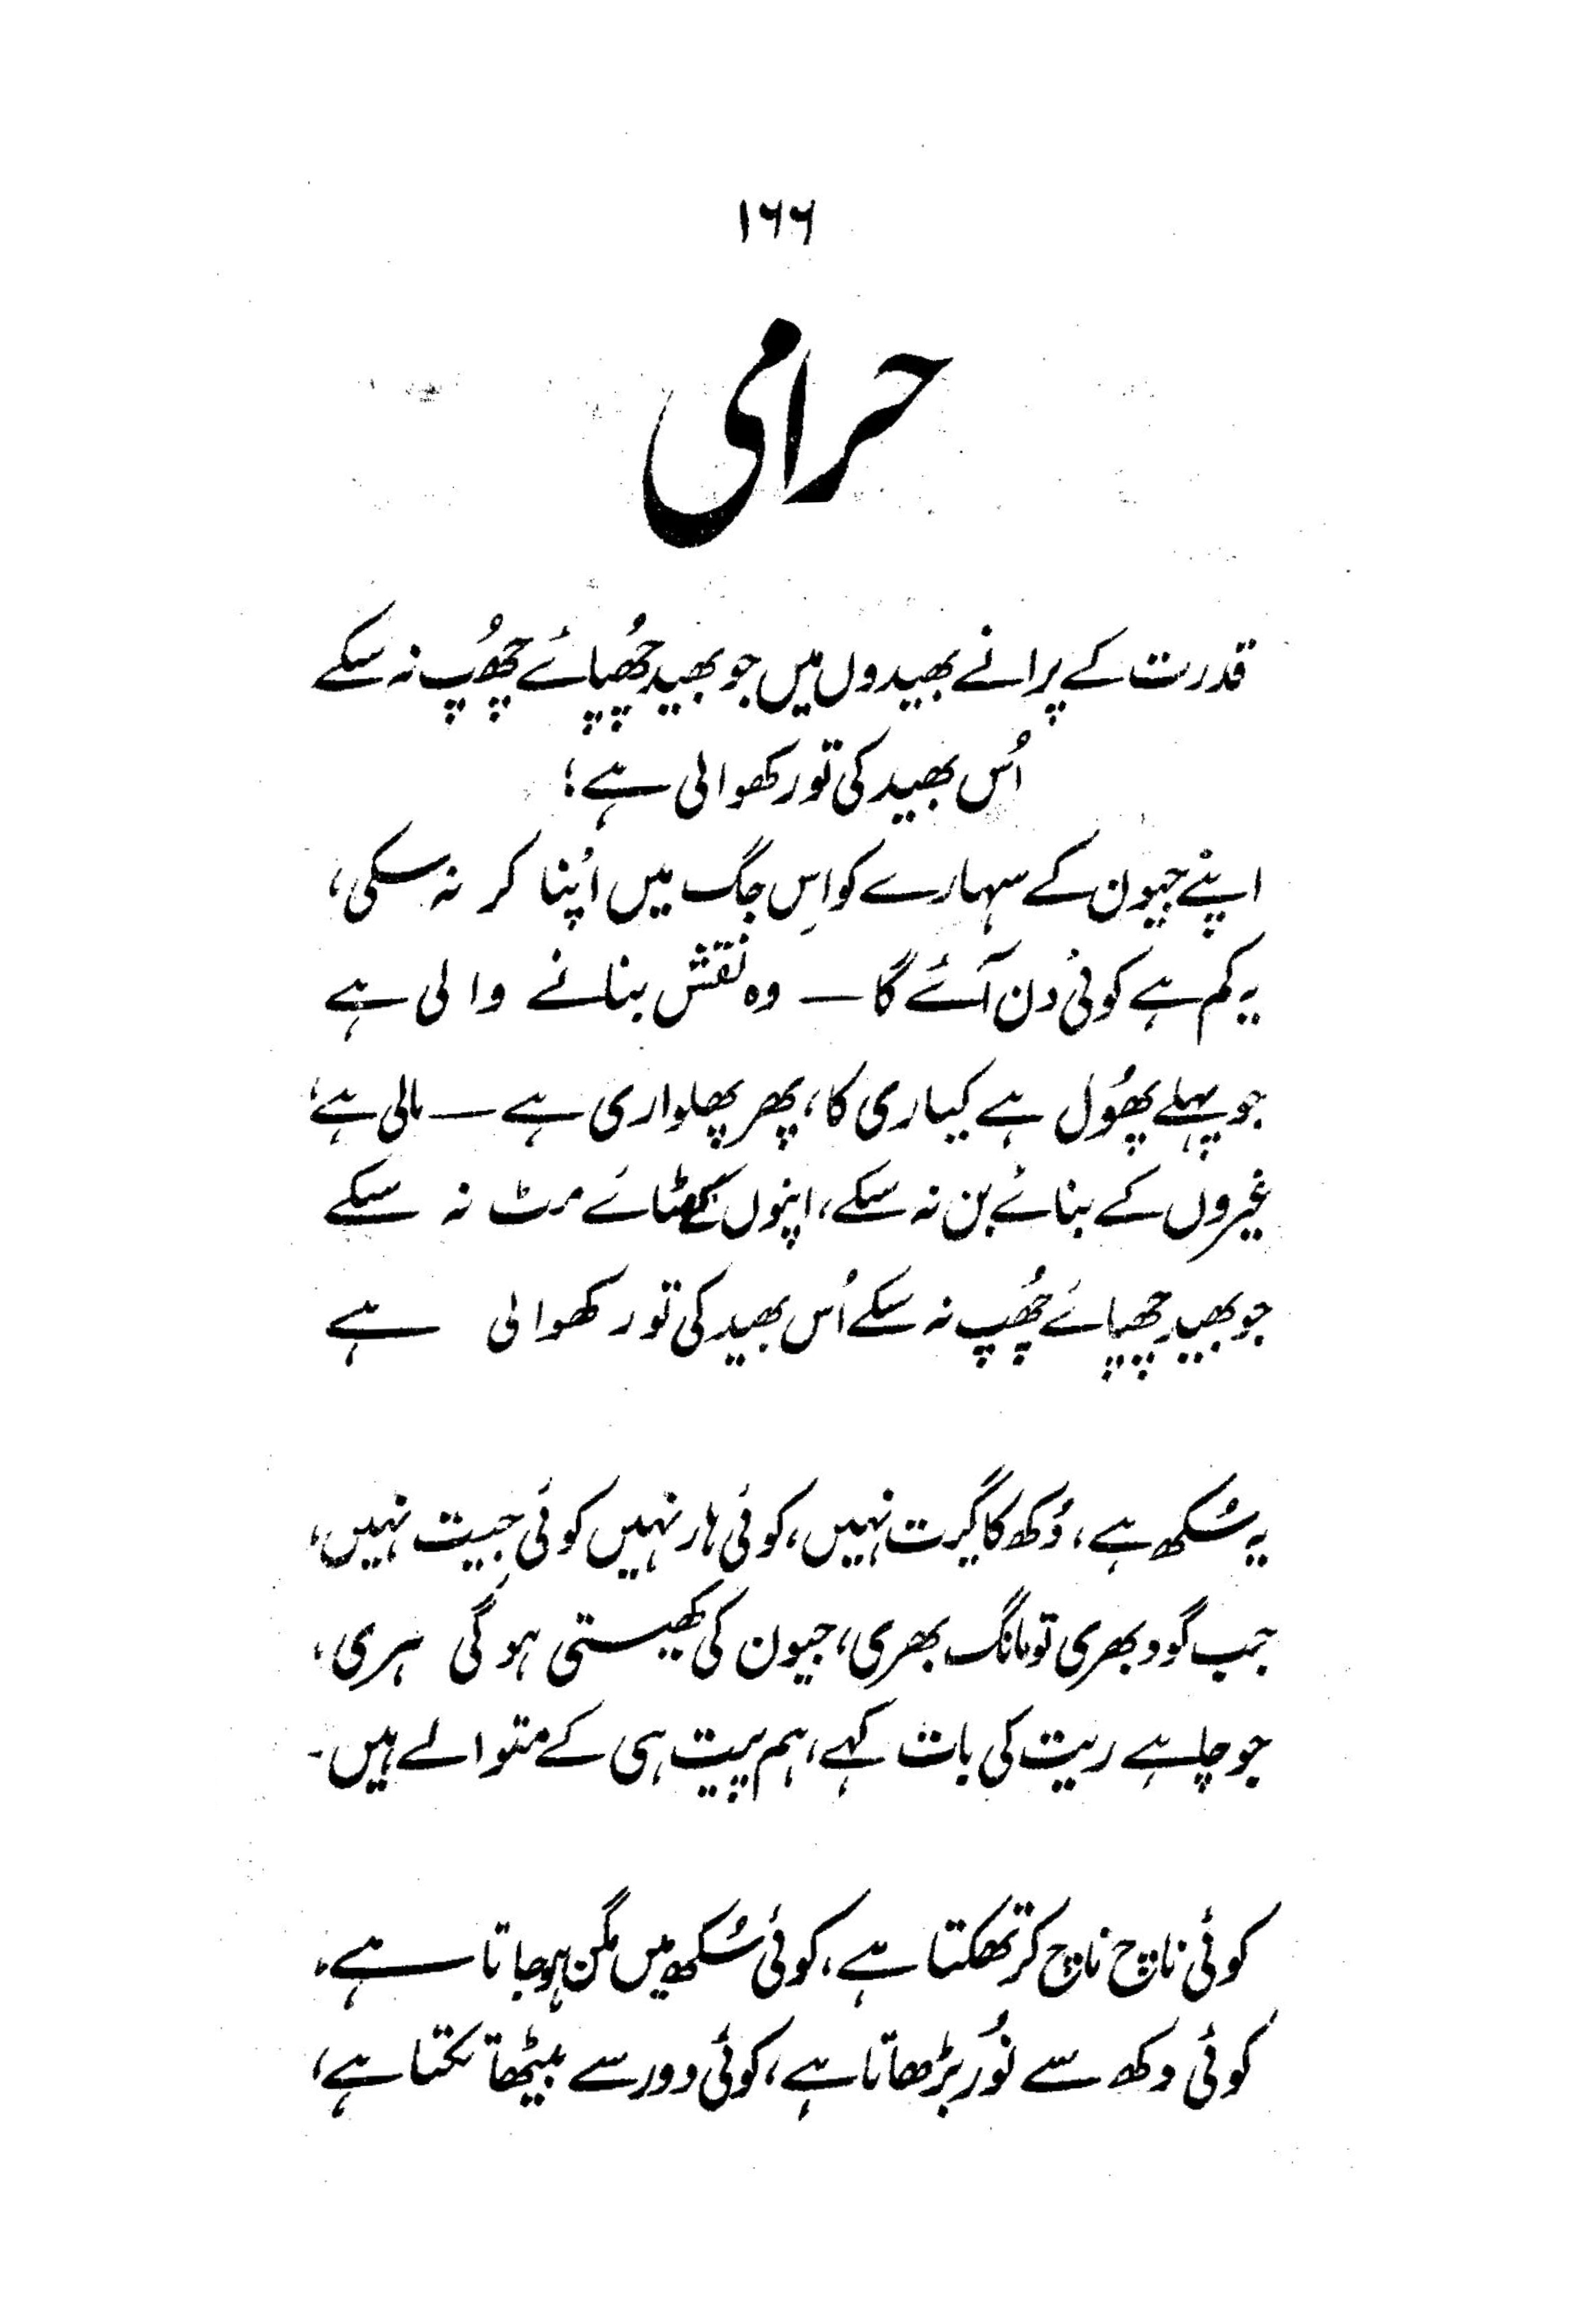 ۱۶۶
حرامی
قدرت کے پرانے بھیدوں میں جو بھید چھُپائے چھُپ نہ سکے
اُس بھید کی تو رکھوالی ہے؛
اپنے جیون کے سہارے کو اِس جگ میں اپنا کر نہ سکی،
یہ کم ہے کوئی دن آئے گا — وہ نقش بنانے والی ہے
جو پہلے پھُول ہے کیاری کا، پھر پھلواری ہے — مالی ہے؛
غیروں کے بنائے بن نہ سکے، اپنوں کے مٹائے مٹ نہ سکے
جو بھید چھپائے چھُپ نہ سکے اُس بھید کی تو رکھوالی ہے
یہ سُکھ ہے، دُکھ کا گیت نہیں، کوئی ہار نہیں کوئی جیت نہیں،
جب گود بھری تو مانگ بھری، جیون کی کھیتی ہو گی ہری،
جو چاہے ریت کی بات کہے، ہم پیت ہی کے متوالے ہیں۔
کوئی ناچ ناچ کر تھکتا ہے، کوئی سُکھ میں مگن ہو جاتا ہے،
کوئی دکھ سے نُور بڑھاتا ہے، کوئی دور سے بیٹھا تکتا ہے،